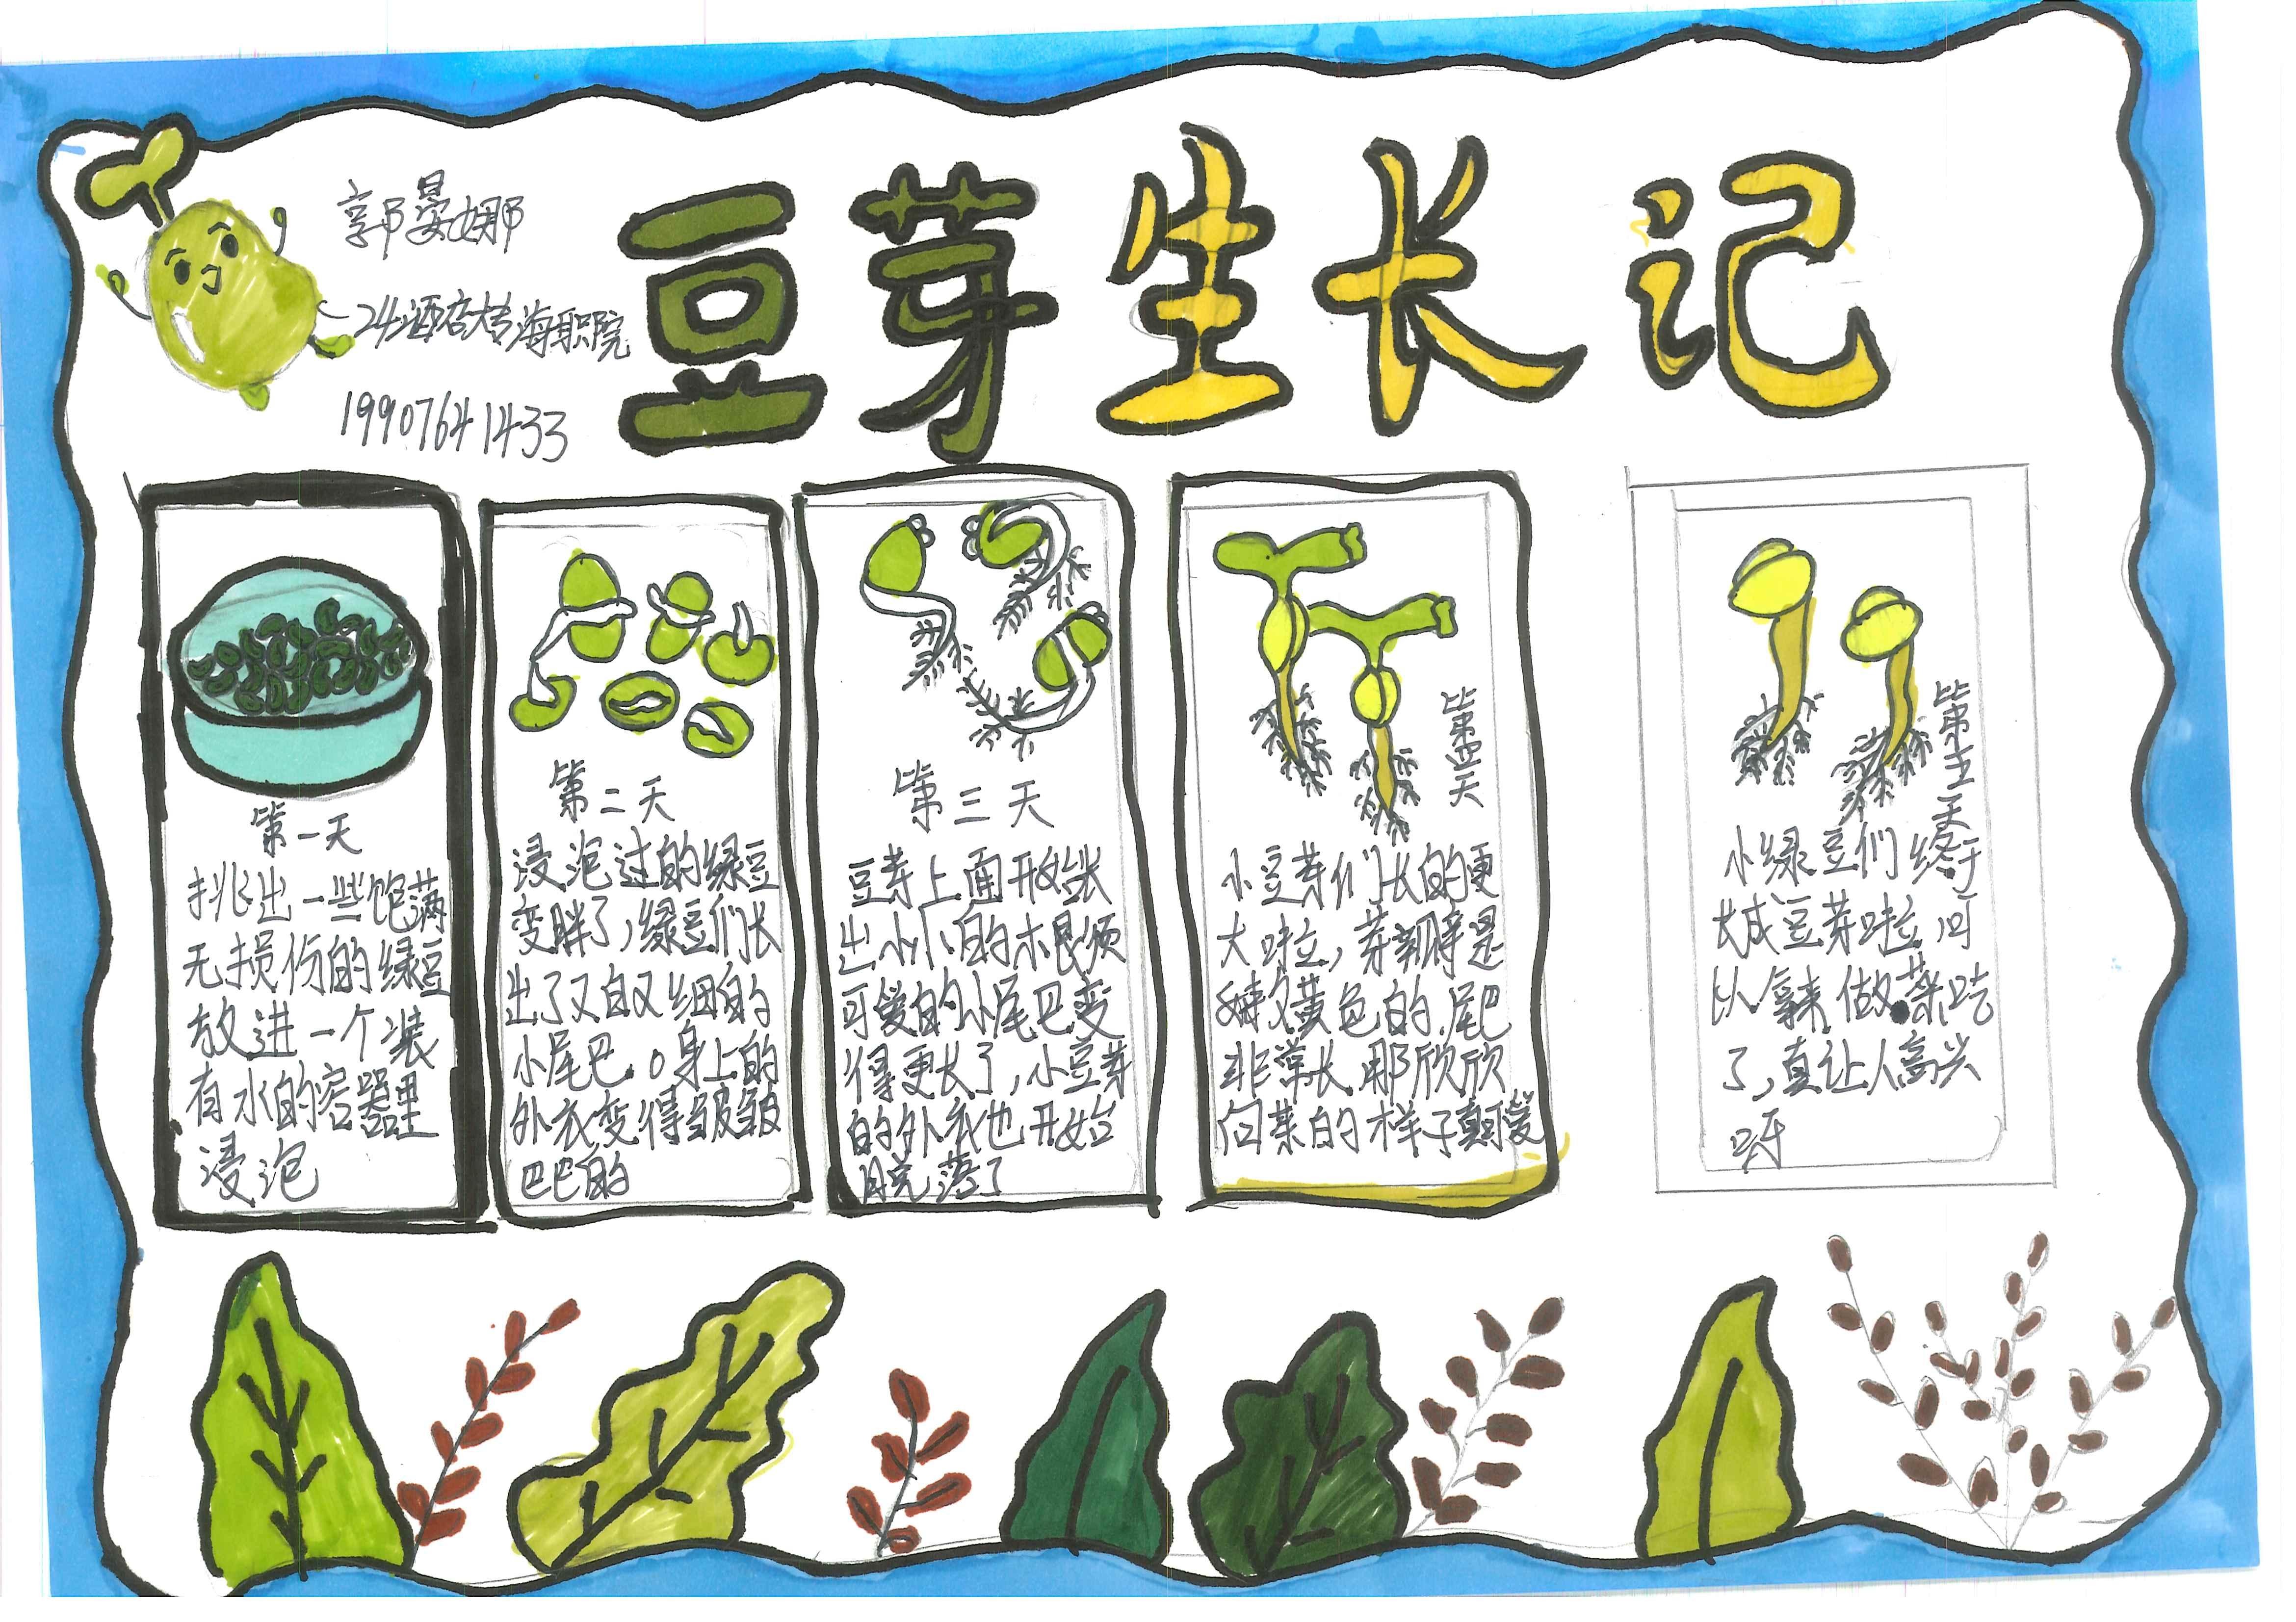 郭晏娜
24酒店大专海职院
19907641433
豆芽生长记
第一天
挑出一些饱满
无损伤的绿豆
放进一个装
有水的容器里
浸泡
第二天
浸泡过的绿豆
变胖了，绿豆们长
出了又白又细的
小尾巴。身上的
外衣变得皱皱
巴巴的
第三天
豆芽上面开始长
出小小的根须
可爱的小尾巴变
得更长了，小豆芽
的外衣也开始
脱落了
第四天
小豆芽们长的更
大啦，芽瓣是
嫩黄色的尾巴
非常长，那欣欣
向荣的样子真可爱
第五天
小绿豆们终于
长成豆芽啦可
以拿来做菜吃
了，真让人高兴
呀